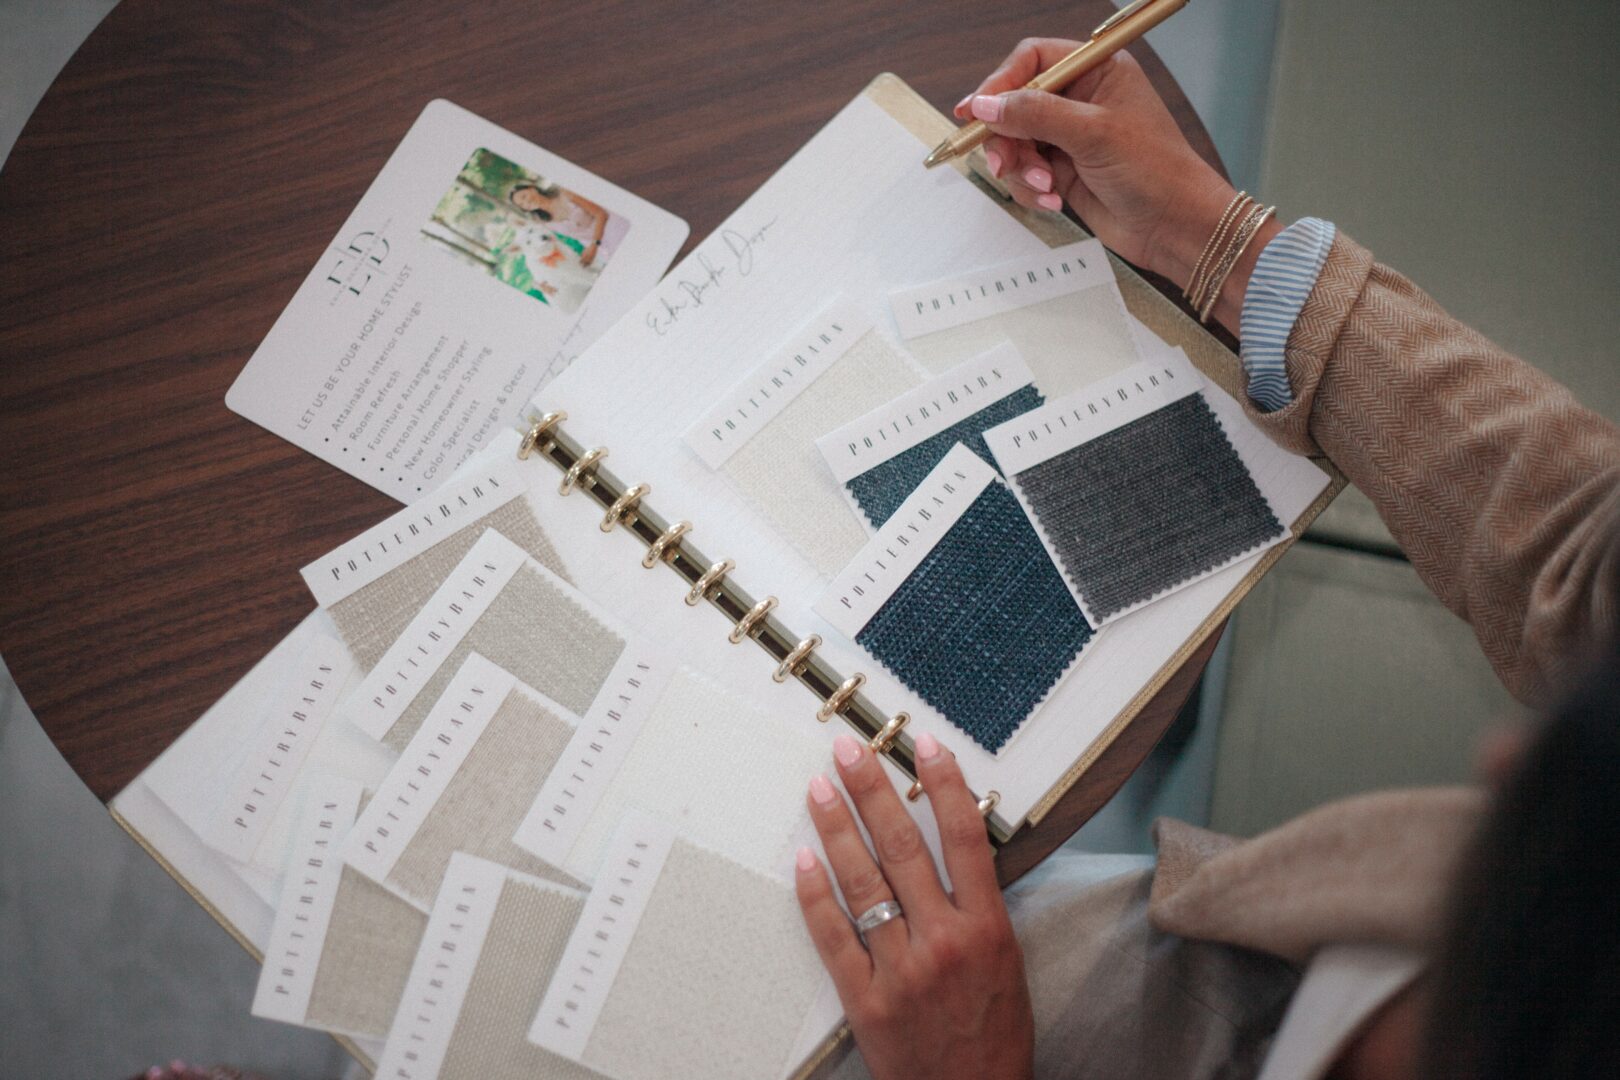 E D
D
LET US BE YOUR HOME STYLIST
• Attainable Interior Design
• Room Refresh
• Furniture Arrangement
• Personal Home Shopper
• New Homeowner Styling
• Color Specialist
Design & Decor
Design
POTTERYBARN
POTTERYBARN
POTTERYBARN
POTTERYBARN
POTTERYBARN
POTTERYBARN
POTTERYBARN
POTTERYBARN
POTTERYBARN
POTTERYBARN
POTTERYBARN
POTTERYBARN
POTTERYBARN